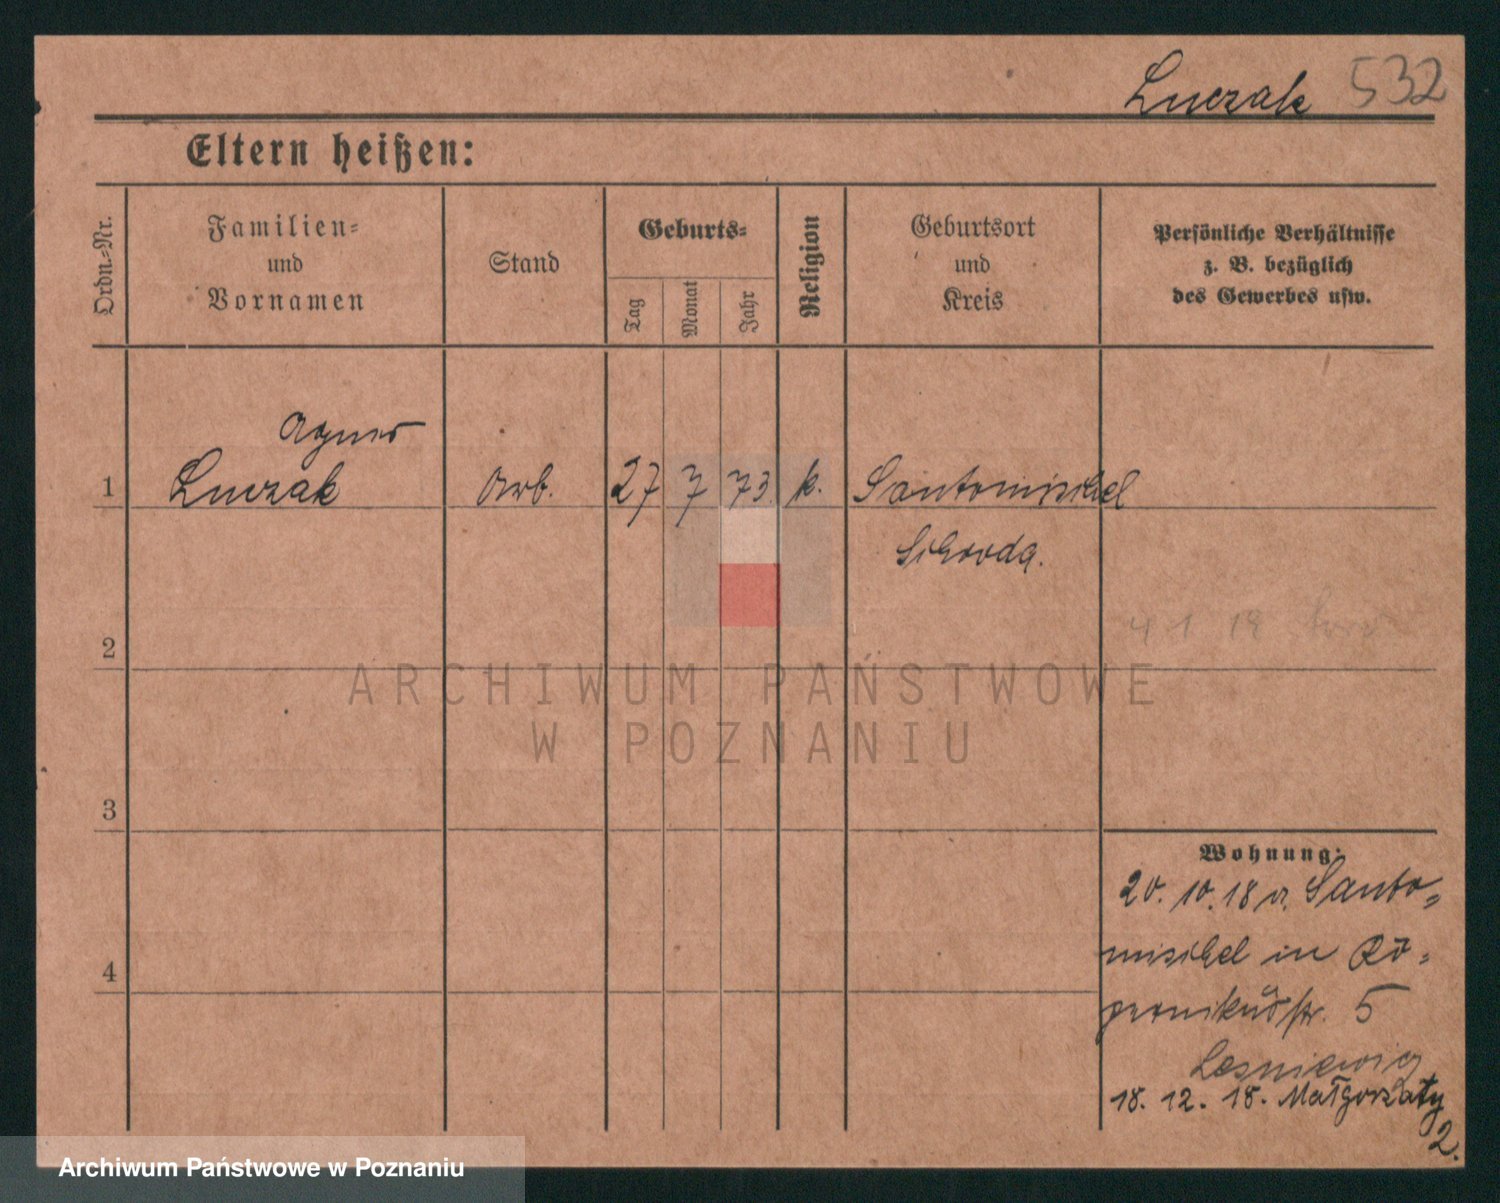 Luczak 532
Eltern heißen:
Ordn.-Nr.
Familien-
und
Vornamen
Stand
Geburts-
Tag
Monat
Jahr
Religion
Geburtsort
und
Kreis
Persönliche Verhältnisse
z. B. bezüglich
des Gewerbes usw.
Agnes
1 Luczak Arb. 27 7 73 k. Santomischel
Schroda.
4 1 19
2
ARCHIWUM PAŃSTWOWE
W POZNANIU
3
Wohnung:
20. 10. 18 v. Santo-
mischel in Ko-
pernikusstr. 5
Lesniewicz
4
18. 12. 18. Małgorzaty
2.
Archiwum Państwowe w Poznaniu